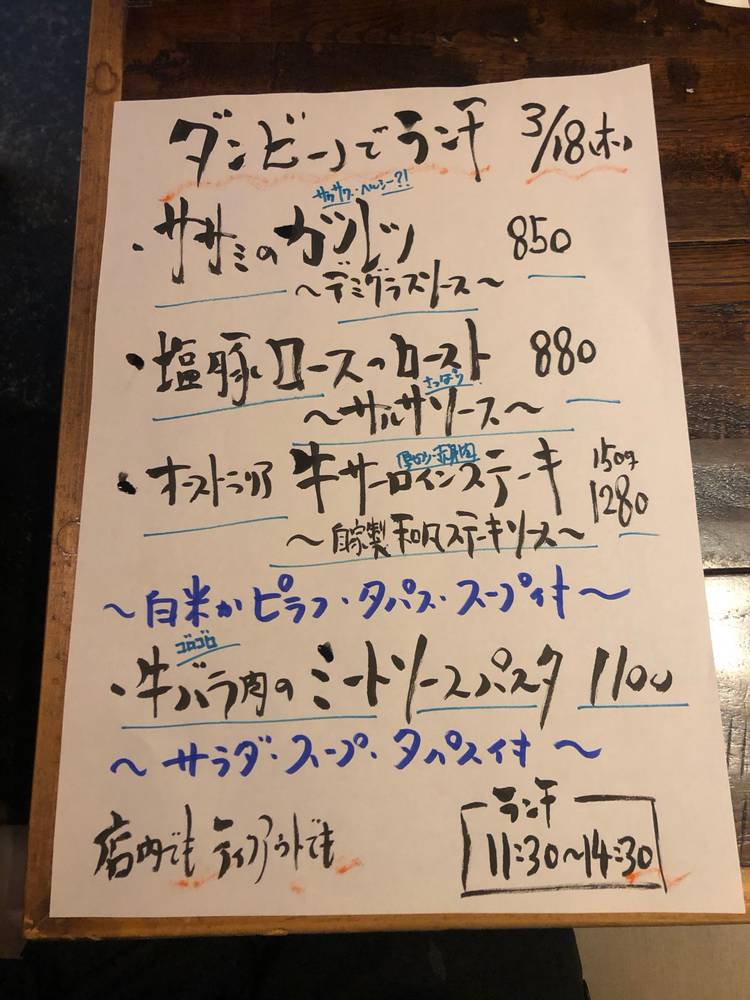 ダンビーノでランチ 3/18(木)
サクサク・ヘルシー?!
・ササミのカツレツ 850
～デミグラスソース～
・塩豚ロースのロースト 880
さっぱり
～サルサソース～
厚切り・赤身肉
・オーストラリア 牛サーロインステーキ 150g 1280
～自家製 和風ステーキソース～
～白米かピラフ・タパス・スープ付～
ゴロゴロ
・牛バラ肉のミートソースパスタ 1100
～サラダ・スープ・タパス付～
店内でもテイクアウトでも
ランチ
11:30～14:30